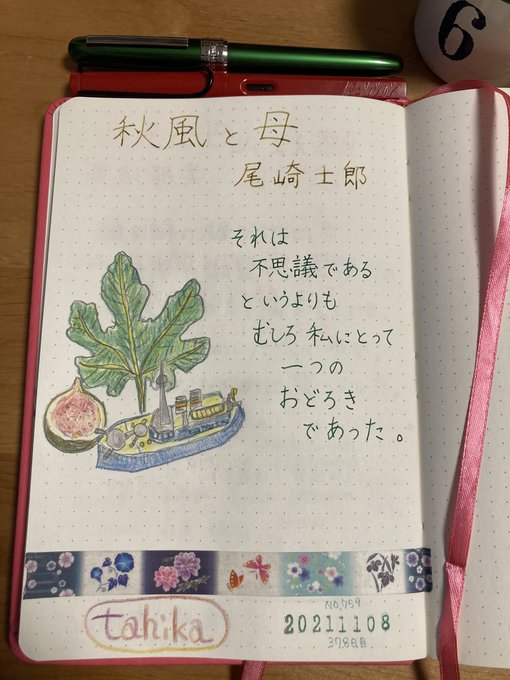 秋風と母
尾崎士郎
それは
不思議である
というよりも
むしろ私にとって
一つの
おどろき
であった。
tahika
NO.759
20211108
378日目
6